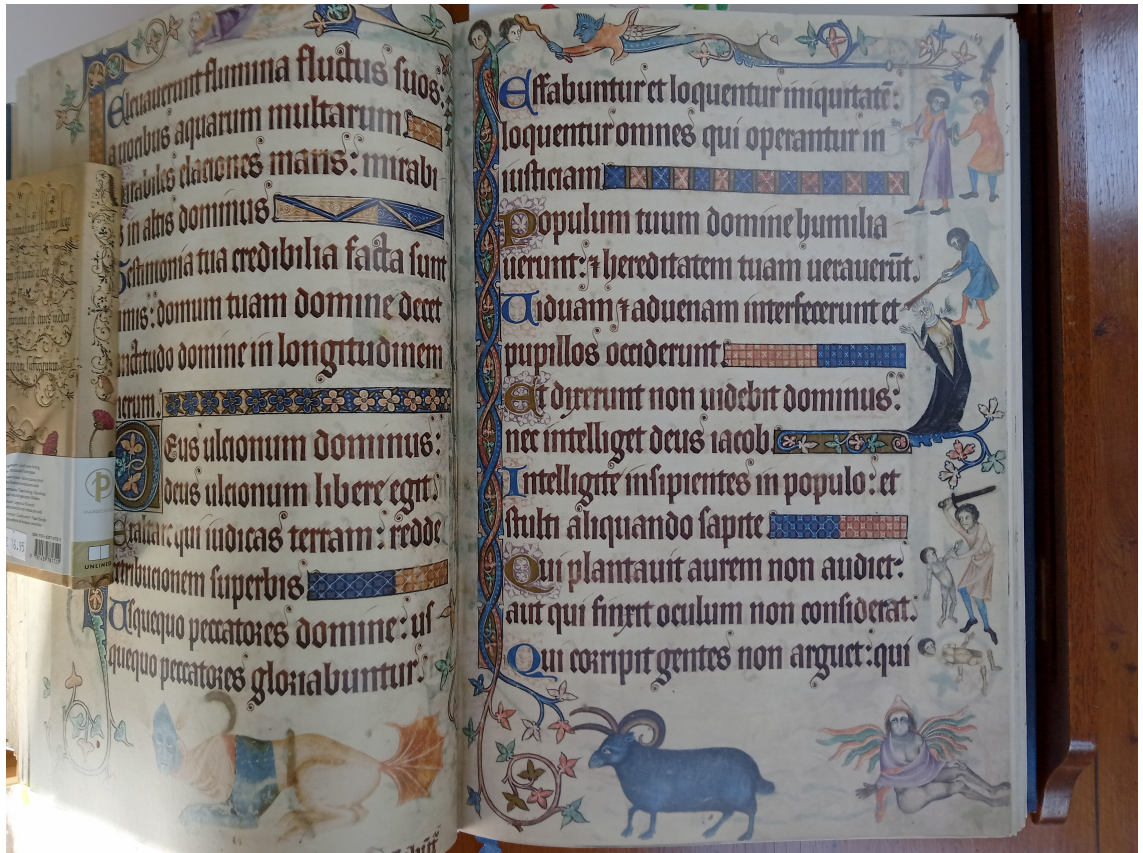 Eleuauerunt flumina fluctus suos:
a uocibus aquarum multarum
mirabiles elaciones maris: mirabi
s in altis dominus
Testimonia tua credibilia facta sunt
nimis: domum tuam domine decet
nctitudo domine in longitudinem
ierum.
Deus ulcionum dominus:
deus ulcionum libere egit.
Exaltare qui iudicas terram: redde
etribucionem superbis
Usquequo peccatores domine: us
quequo peccatores gloriabuntur.
Effabuntur et loquentur iniquitatē:
loquentur omnes qui operantur in
iusticiam
Populum tuum domine humilia
uerunt: ⁊ hereditatem tuam uexauerūt.
Uiduam ⁊ aduenam interfecerunt et
pupillos occiderunt
Et dixerunt non uidebit dominus:
nec intelliget deus iacob
Intelligite insipientes in populo: et
stulti aliquando sapite
Qui plantauit aurem non audiet:
aut qui finxit oculum non considerat.
Qui corripit gentes non arguet: qui
UNLINED
16.95
P